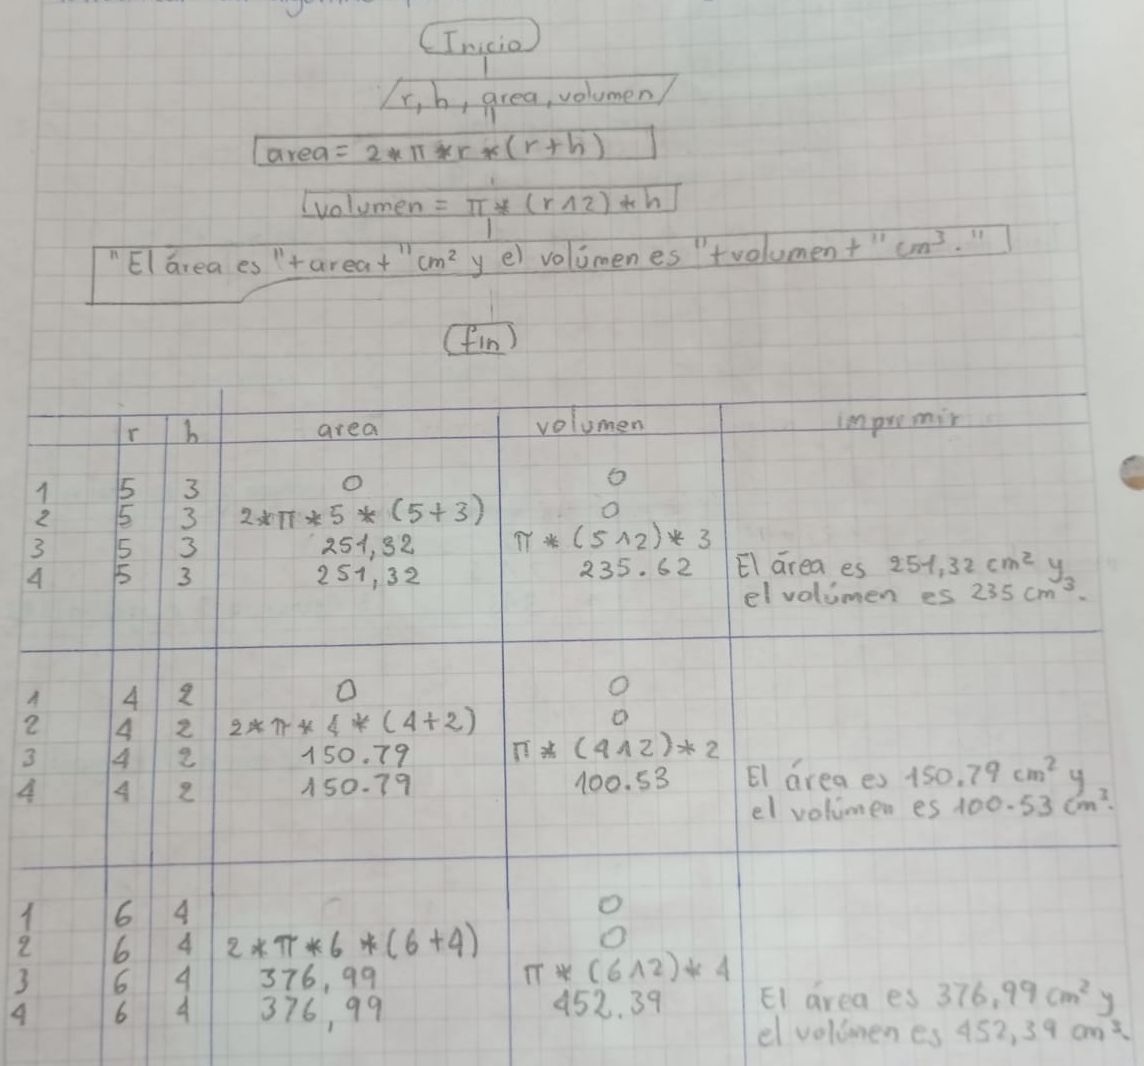 Inicio
r, h, area, volumen
area = 2 * π * r * (r + h)
volumen = π * (r ∧ 2) * h
"El área es "+area+" cm² y el volúmen es "+volumen+" cm³."
fin
r h area volumen imprimir
1 5 3 0 0
2 5 3 2*π*5*(5+3) 0
3 5 3 251,32 π*(5∧2)*3
4 5 3 251,32 235.62 El área es 251,32 cm² y
el volúmen es 235 cm³.
1 4 2 0 0
2 4 2 2*π*4*(4+2) 0
3 4 2 150.79 π*(4∧2)*2
4 4 2 150.79 100.53 El área es 150.79 cm² y
el volúmen es 100.53 cm³.
1 6 4 0
2 6 4 2*π*6*(6+4) 0
3 6 4 376,99 π*(6∧2)*4
4 6 4 376,99 452.39 El área es 376,99 cm² y
el volúmen es 452,39 cm³.